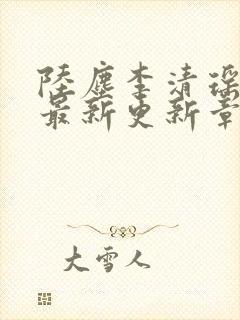 陸塵李清瑶
最新更新章
大雪人